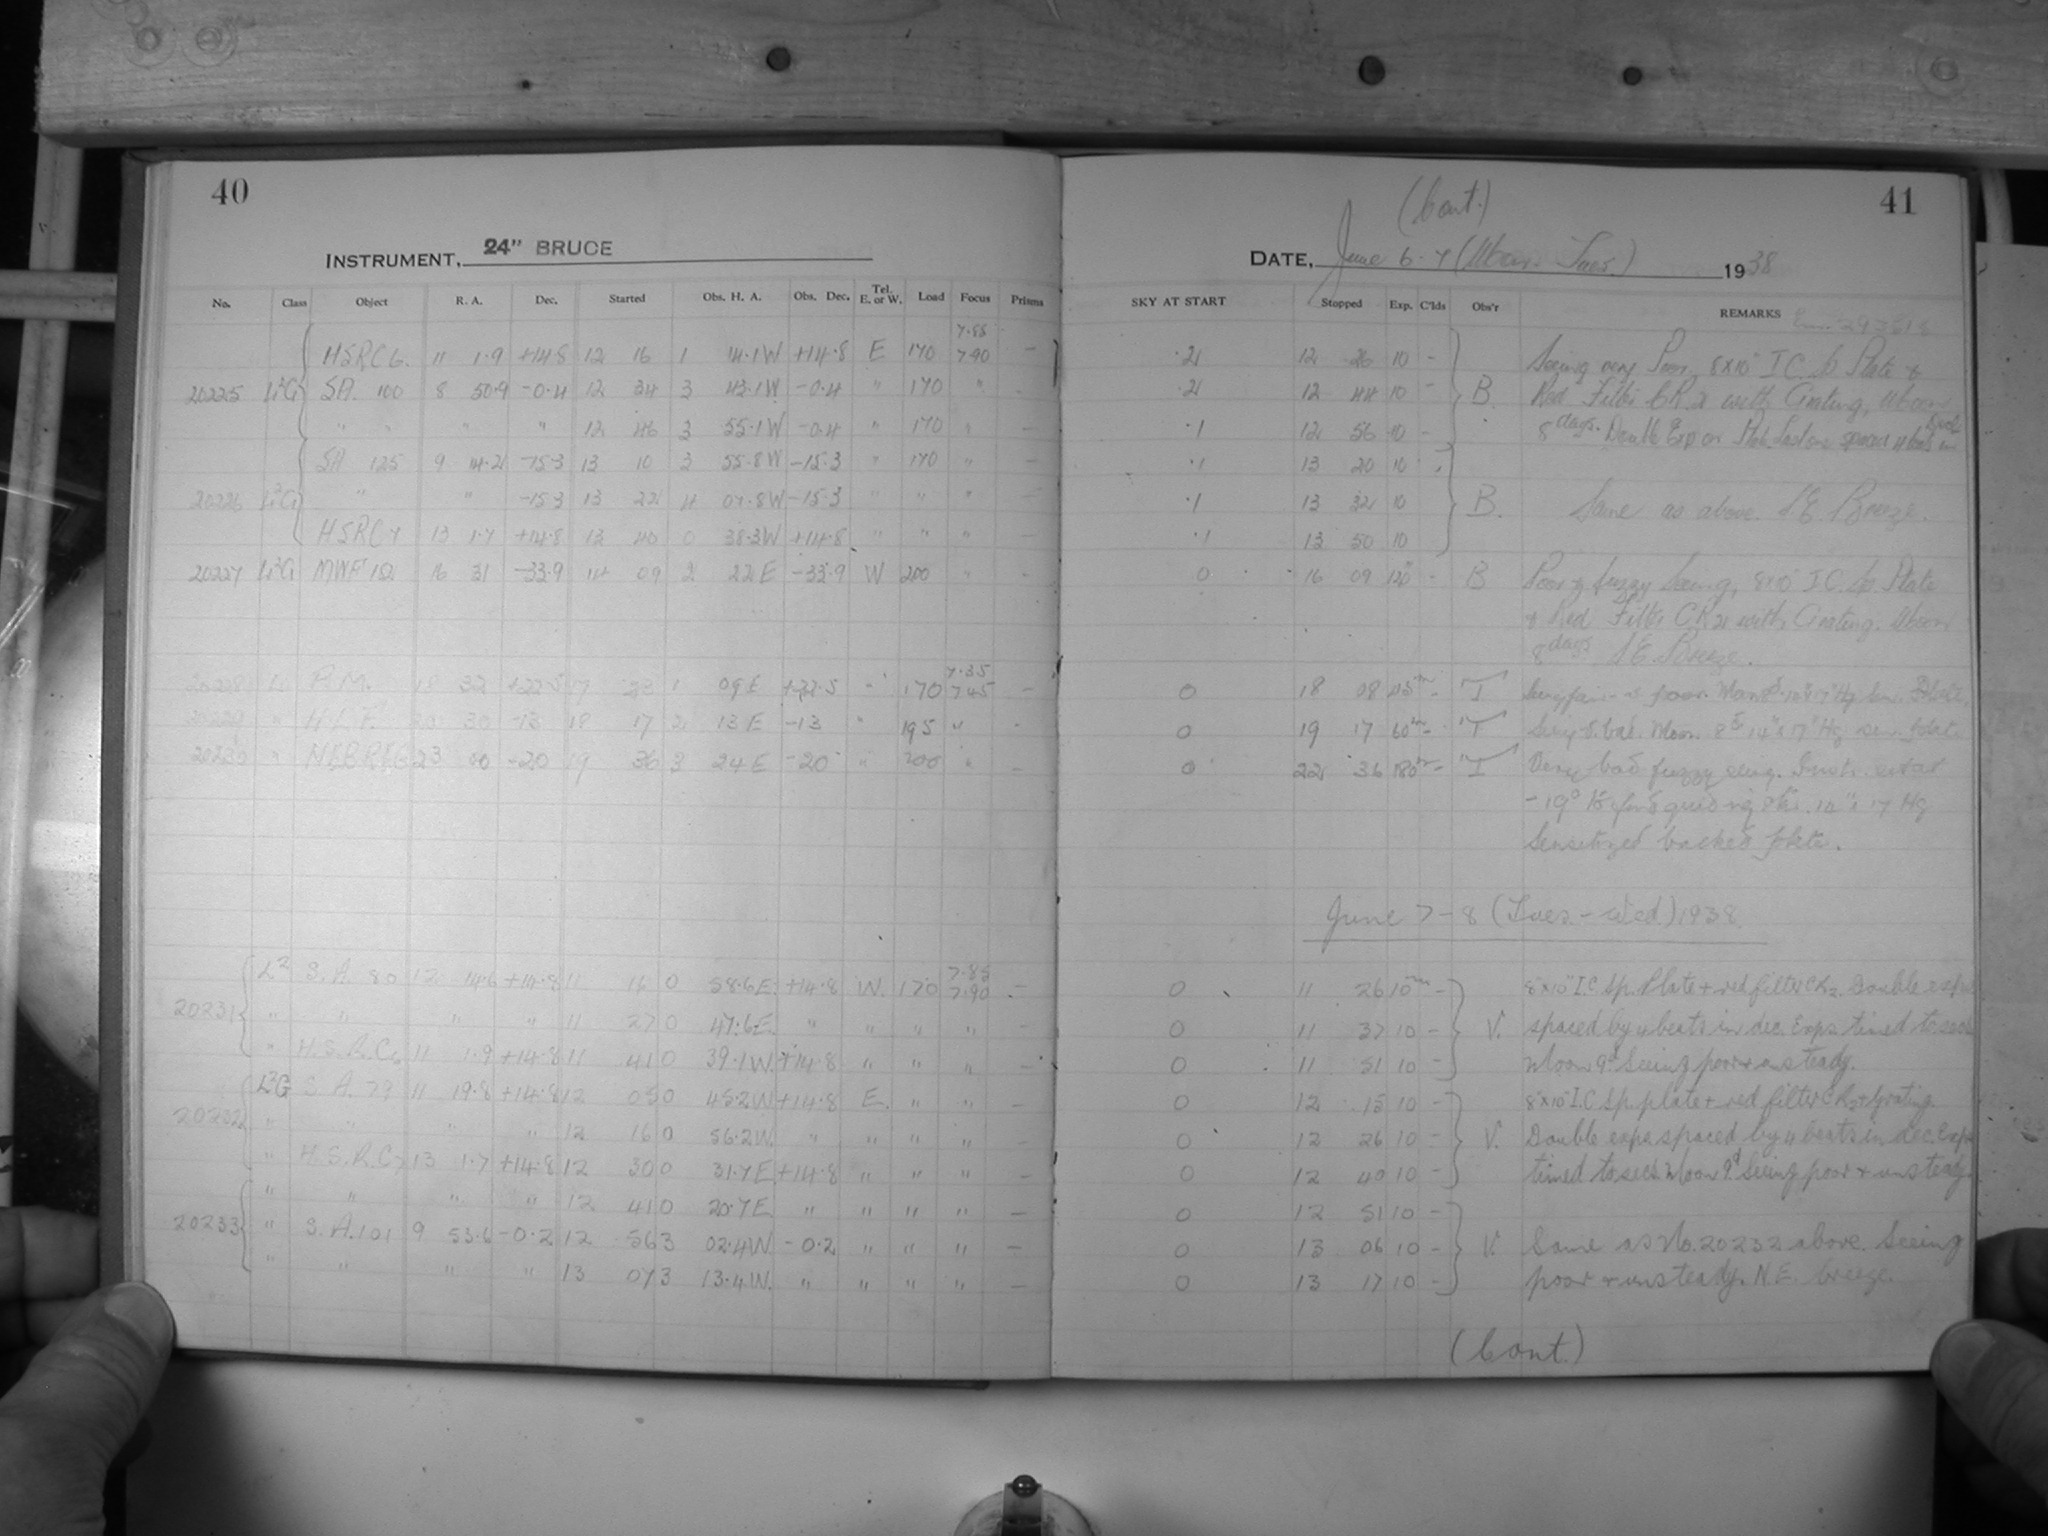 40
INSTRUMENT, 24" BRUCE
No. Class Object R. A. Dec. Started Obs. H. A. Obs. Dec. Tel. E. or W. Load Focus Prisms
7.85
HSRC 6. 11 1.9 +14.8 12 16 1 14.1W +14.8 E 170 7.90 –
20225 L²G SA. 100 8 50.9 -0.4 12 34 3 43.1W -0.4 " 170 " –
" " " " 12 46 3 55.1W -0.4 " 170 " –
SA 125 9 14.2 -15.3 13 10 3 55.8W -15.3 " 170 " –
20226 L²G " " -15.3 13 22 4 07.8W -15.3 " " " –
HSRC 7 13 1.7 +14.8 13 40 0 38.3W +14.8 " " " –
20227 L²G MWF 16 31 -33.9 14 09 2 22E -33.9 W 200 " –
7.35
20228 L 18 32 +22.5 17 23 1 09E +22.5 " 170 7.45 –
20229 " H.L.F. 20 30 -13 18 17 2 13E -13 " 195 "
20230 " NEB.REG 23 00 -20 19 36 3 24E -20 " 200 " –
7.85
L² S.A. 80 12 14.6 +14.8 11 16 0 58.6E. +14.8 W. 170 7.90 –
20231 " " " " 11 27 0 47.6E. " " " " –
" H.S.R.C6 11 1.9 +14.8 11 41 0 39.1W. +14.8 " " " –
L²G S.A. 79 11 19.8 +14.8 12 05 0 45.2W +14.8 E. " " –
20232 " " " " 12 16 0 56.2W. " " " " –
" H.S.R.C7 13 1.7 +14.8 12 30 0 31.7E +14.8 " " " –
" " " " 12 41 0 20.7E " " " " –
20233 " S.A. 101 9 53.6 -0.2 12 56 3 02.4W. -0.2 " " " –
" " " " 13 07 3 13.4W. " " " " –
(Cont.)
41
DATE, June 6-7 (Mon. Tues.) 1938
SKY AT START Stopped Exp. C'lds Obs'r REMARKS
.2 12 26 10 – Seeing very Poor, 8x10" I.C. Sp Plate &
.2 12 44 10 – B Red Filter CR2 with Grating, Moon
.1 12 56 10 – 8 days. Double Exp on spaced 4 beats in
.1 13 20 10 –
.1 13 32 10 B. Same as above. S.E. Breeze.
.1 13 50 10
0 16 09 120 – B Poor & fuzzy Seeing, 8x10" I.C. Sp. Plate
& Red Filter CR2 with Grating. Moon
8 days S.E. Breeze.
0 18 08 45m – T Seeing fair to poor. Moon Hg sen. Plate.
0 19 17 60m – T Moon 14"x17" Hg sen. plate
0 22 36 180m – T Very bad fuzzy seeing.
17 Hg
Sensitized backed plate.
June 7-8 (Tues.-Wed.) 1938.
0 11 26 10m – 8"x10" I.C. Sp. Plate + red filter CR2. Double exps
0 11 37 10 – V. spaced by 4 beats in dec. Exps timed to secs
0 11 51 10 – Moon 9d. Seeing poor + unsteady.
0 12 15 10 – 8"x10" I.C. Sp. plate + red filter CR2 + Grating.
0 12 26 10 – V. Double exps spaced by 4 beats in dec. Exps
0 12 40 10 – timed to secs. Moon 9d. Seeing poor + unsteady.
0 12 51 10 –
0 13 06 10 – V. Same as No. 20232 above. Seeing
0 13 17 10 – poor + unsteady. N.E. breeze.
(Cont.)